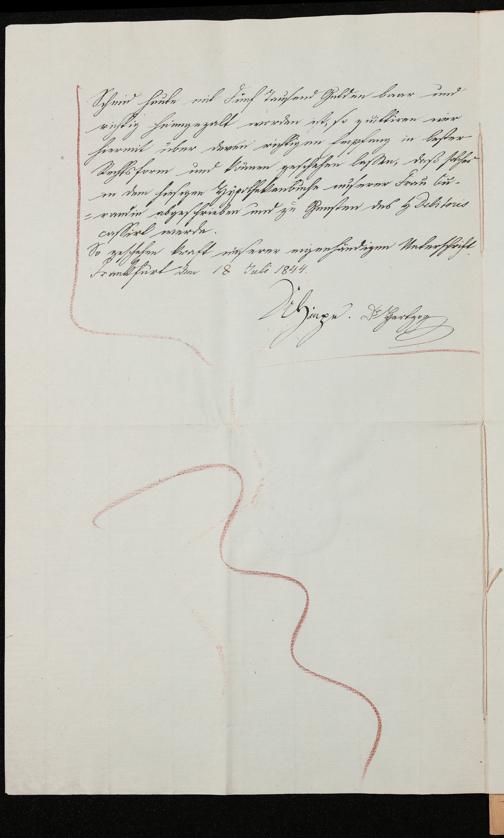 Schein heute mit Fünf Tausend Gulden baar und
richtig heimgezahlt worden ist, so quittiren wir
hiermit über deren richtigen Empfang in bester
Rechtsform und können geschehen lassen, daß solche
in dem hiesigen Hypothekenbuche unserer Frau
abgeschrieben und zu Gunsten des H Debitoris
cassirt werde.
So geschehen kraft unserer eigenhändigen Unterschrift.
Frankfurt den 18 Juli 1844.